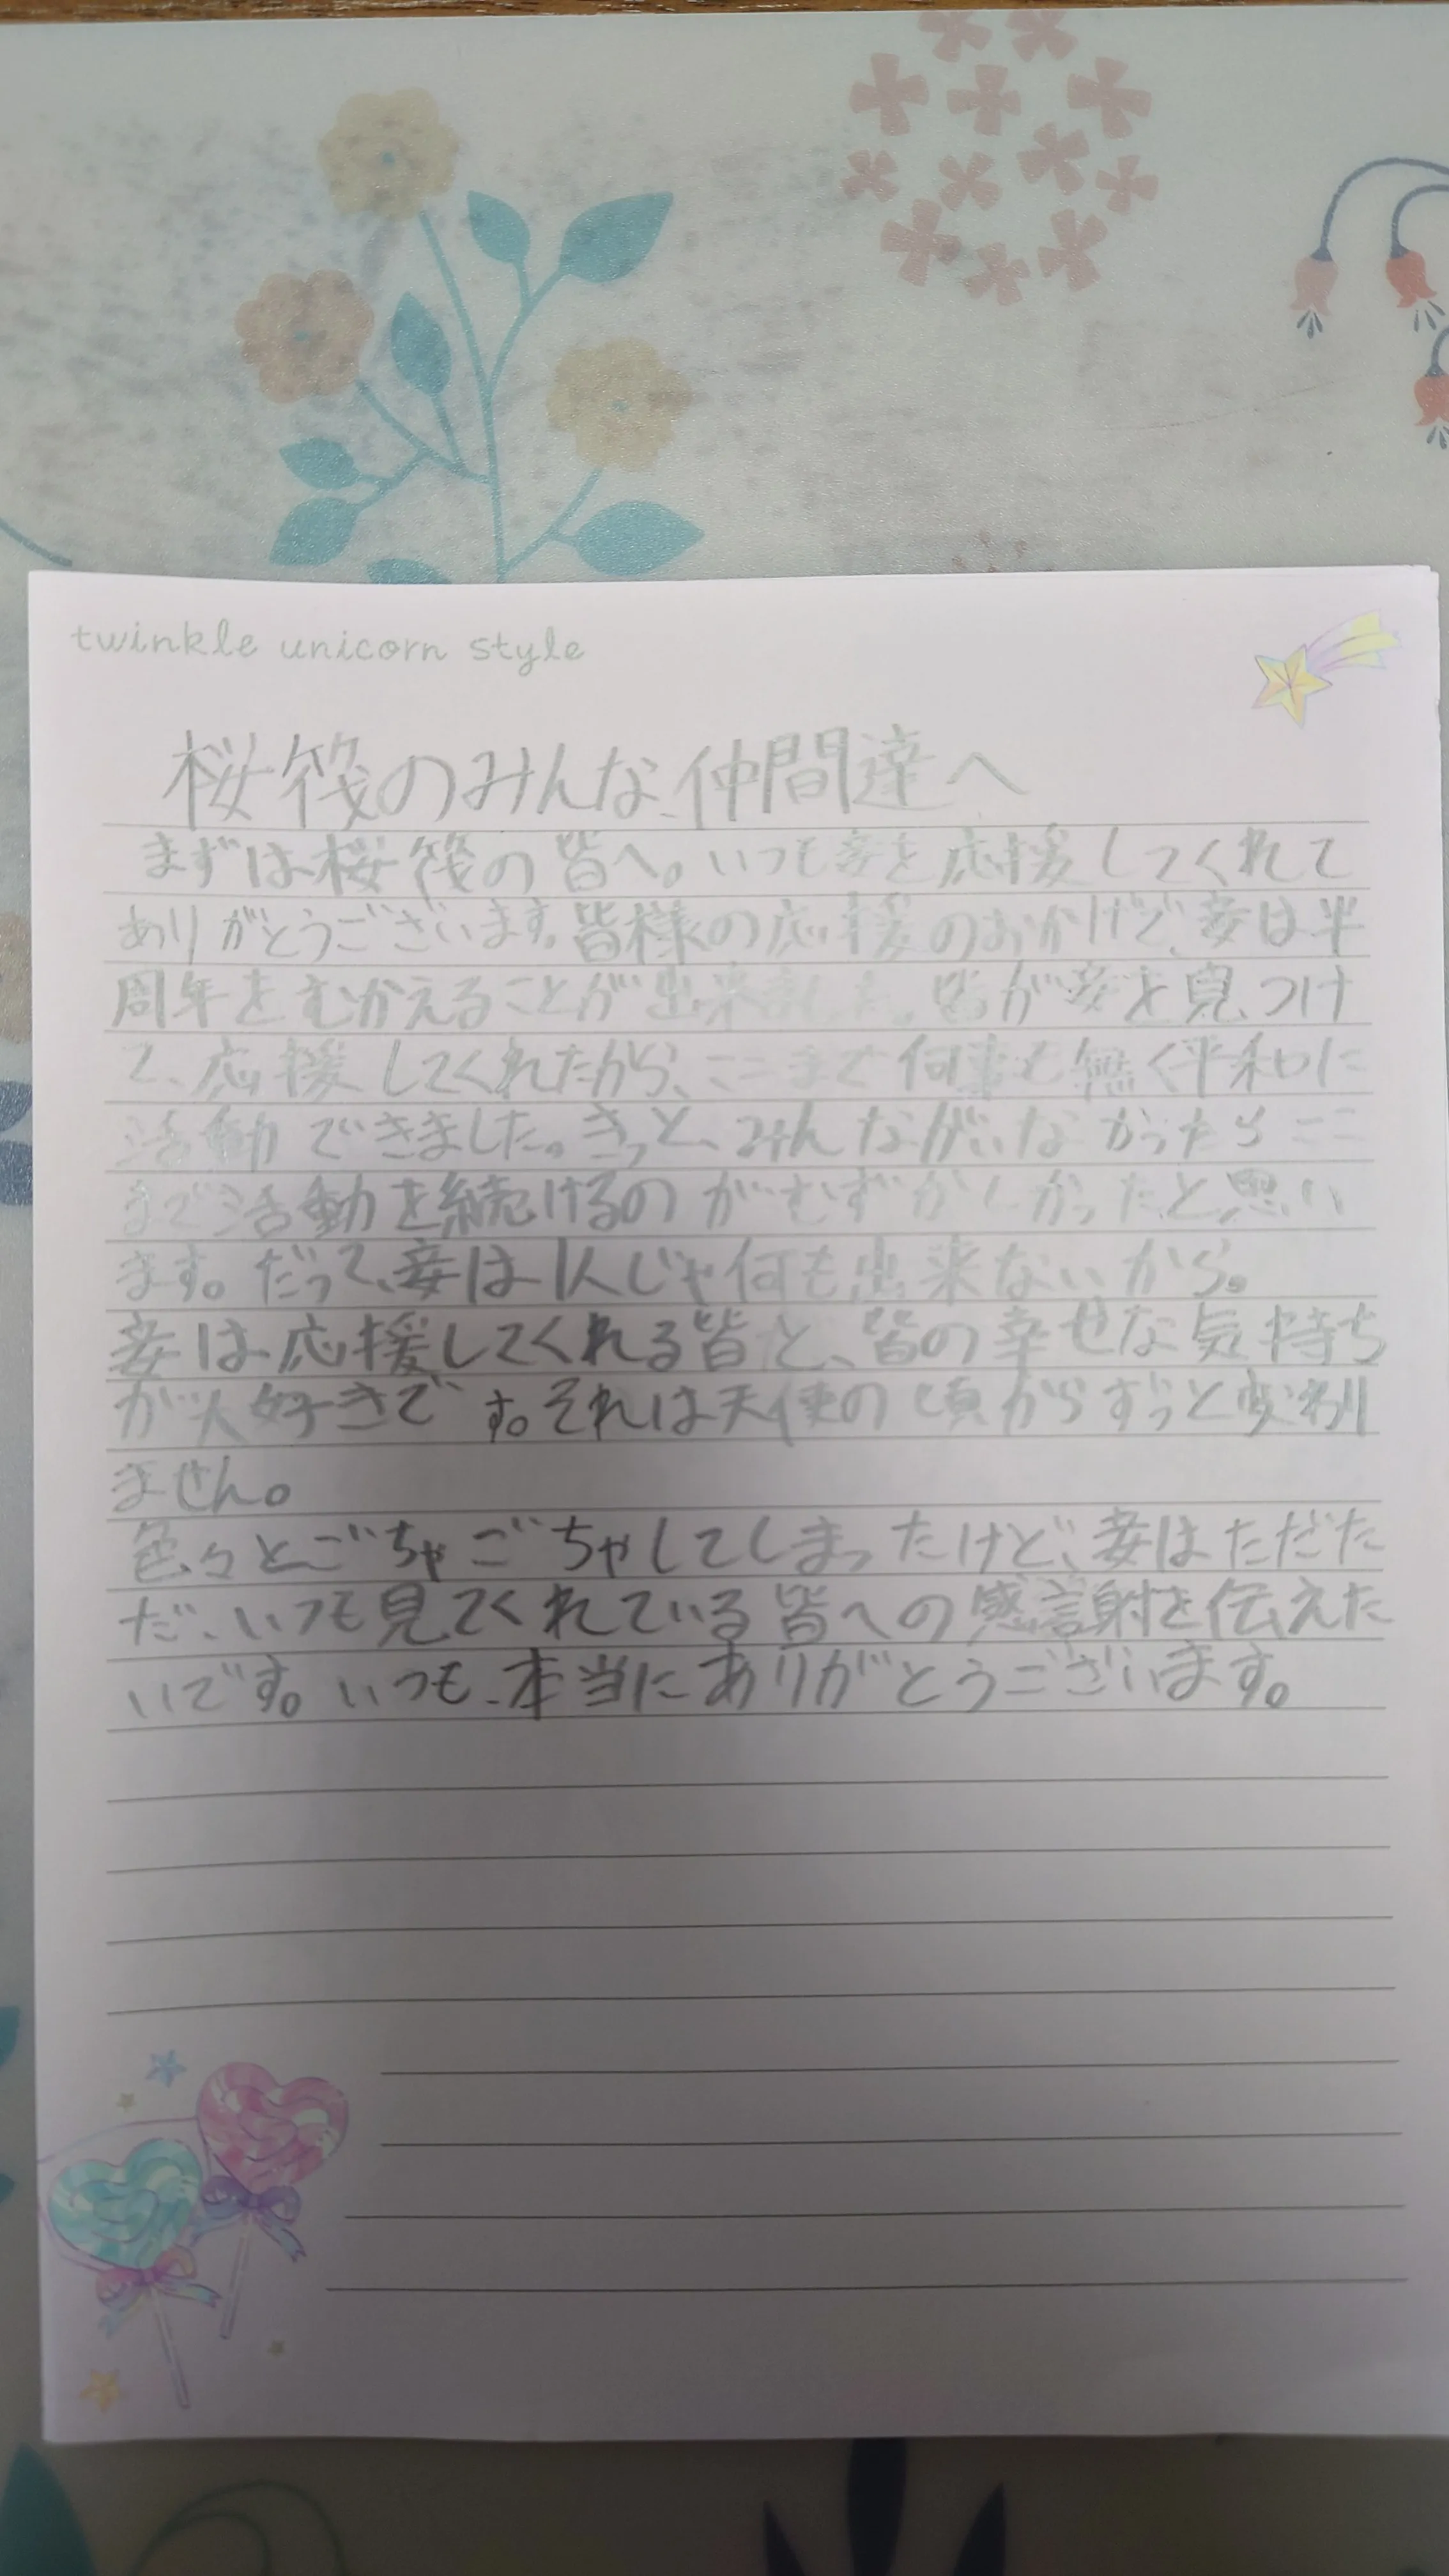 twinkle unicorn style
桜筏のみんな、仲間達へ
まずは桜筏の皆へ。いつも妾を応援してくれて
ありがとうございます。皆様の応援のおかげで、妾は半
周年をむかえることが出来ました。皆が妾を見つけ
て、応援してくれたから、ここまで何事も無く平和に
活動できました。きっと、みんながいなかったらここ
まで活動を続けるのがむずかしかったと思い
ます。だって、妾は1人じゃ何も出来ないから。
妾は応援してくれる皆と、皆の幸せな気持ち
が大好きです。それは天使の頃からずっと変わり
ません。
色々とごちゃごちゃしてしまったけど、妾はただた
だ、いつも見てくれている皆への感謝を伝えた
いです。いつも、本当にありがとうございます。